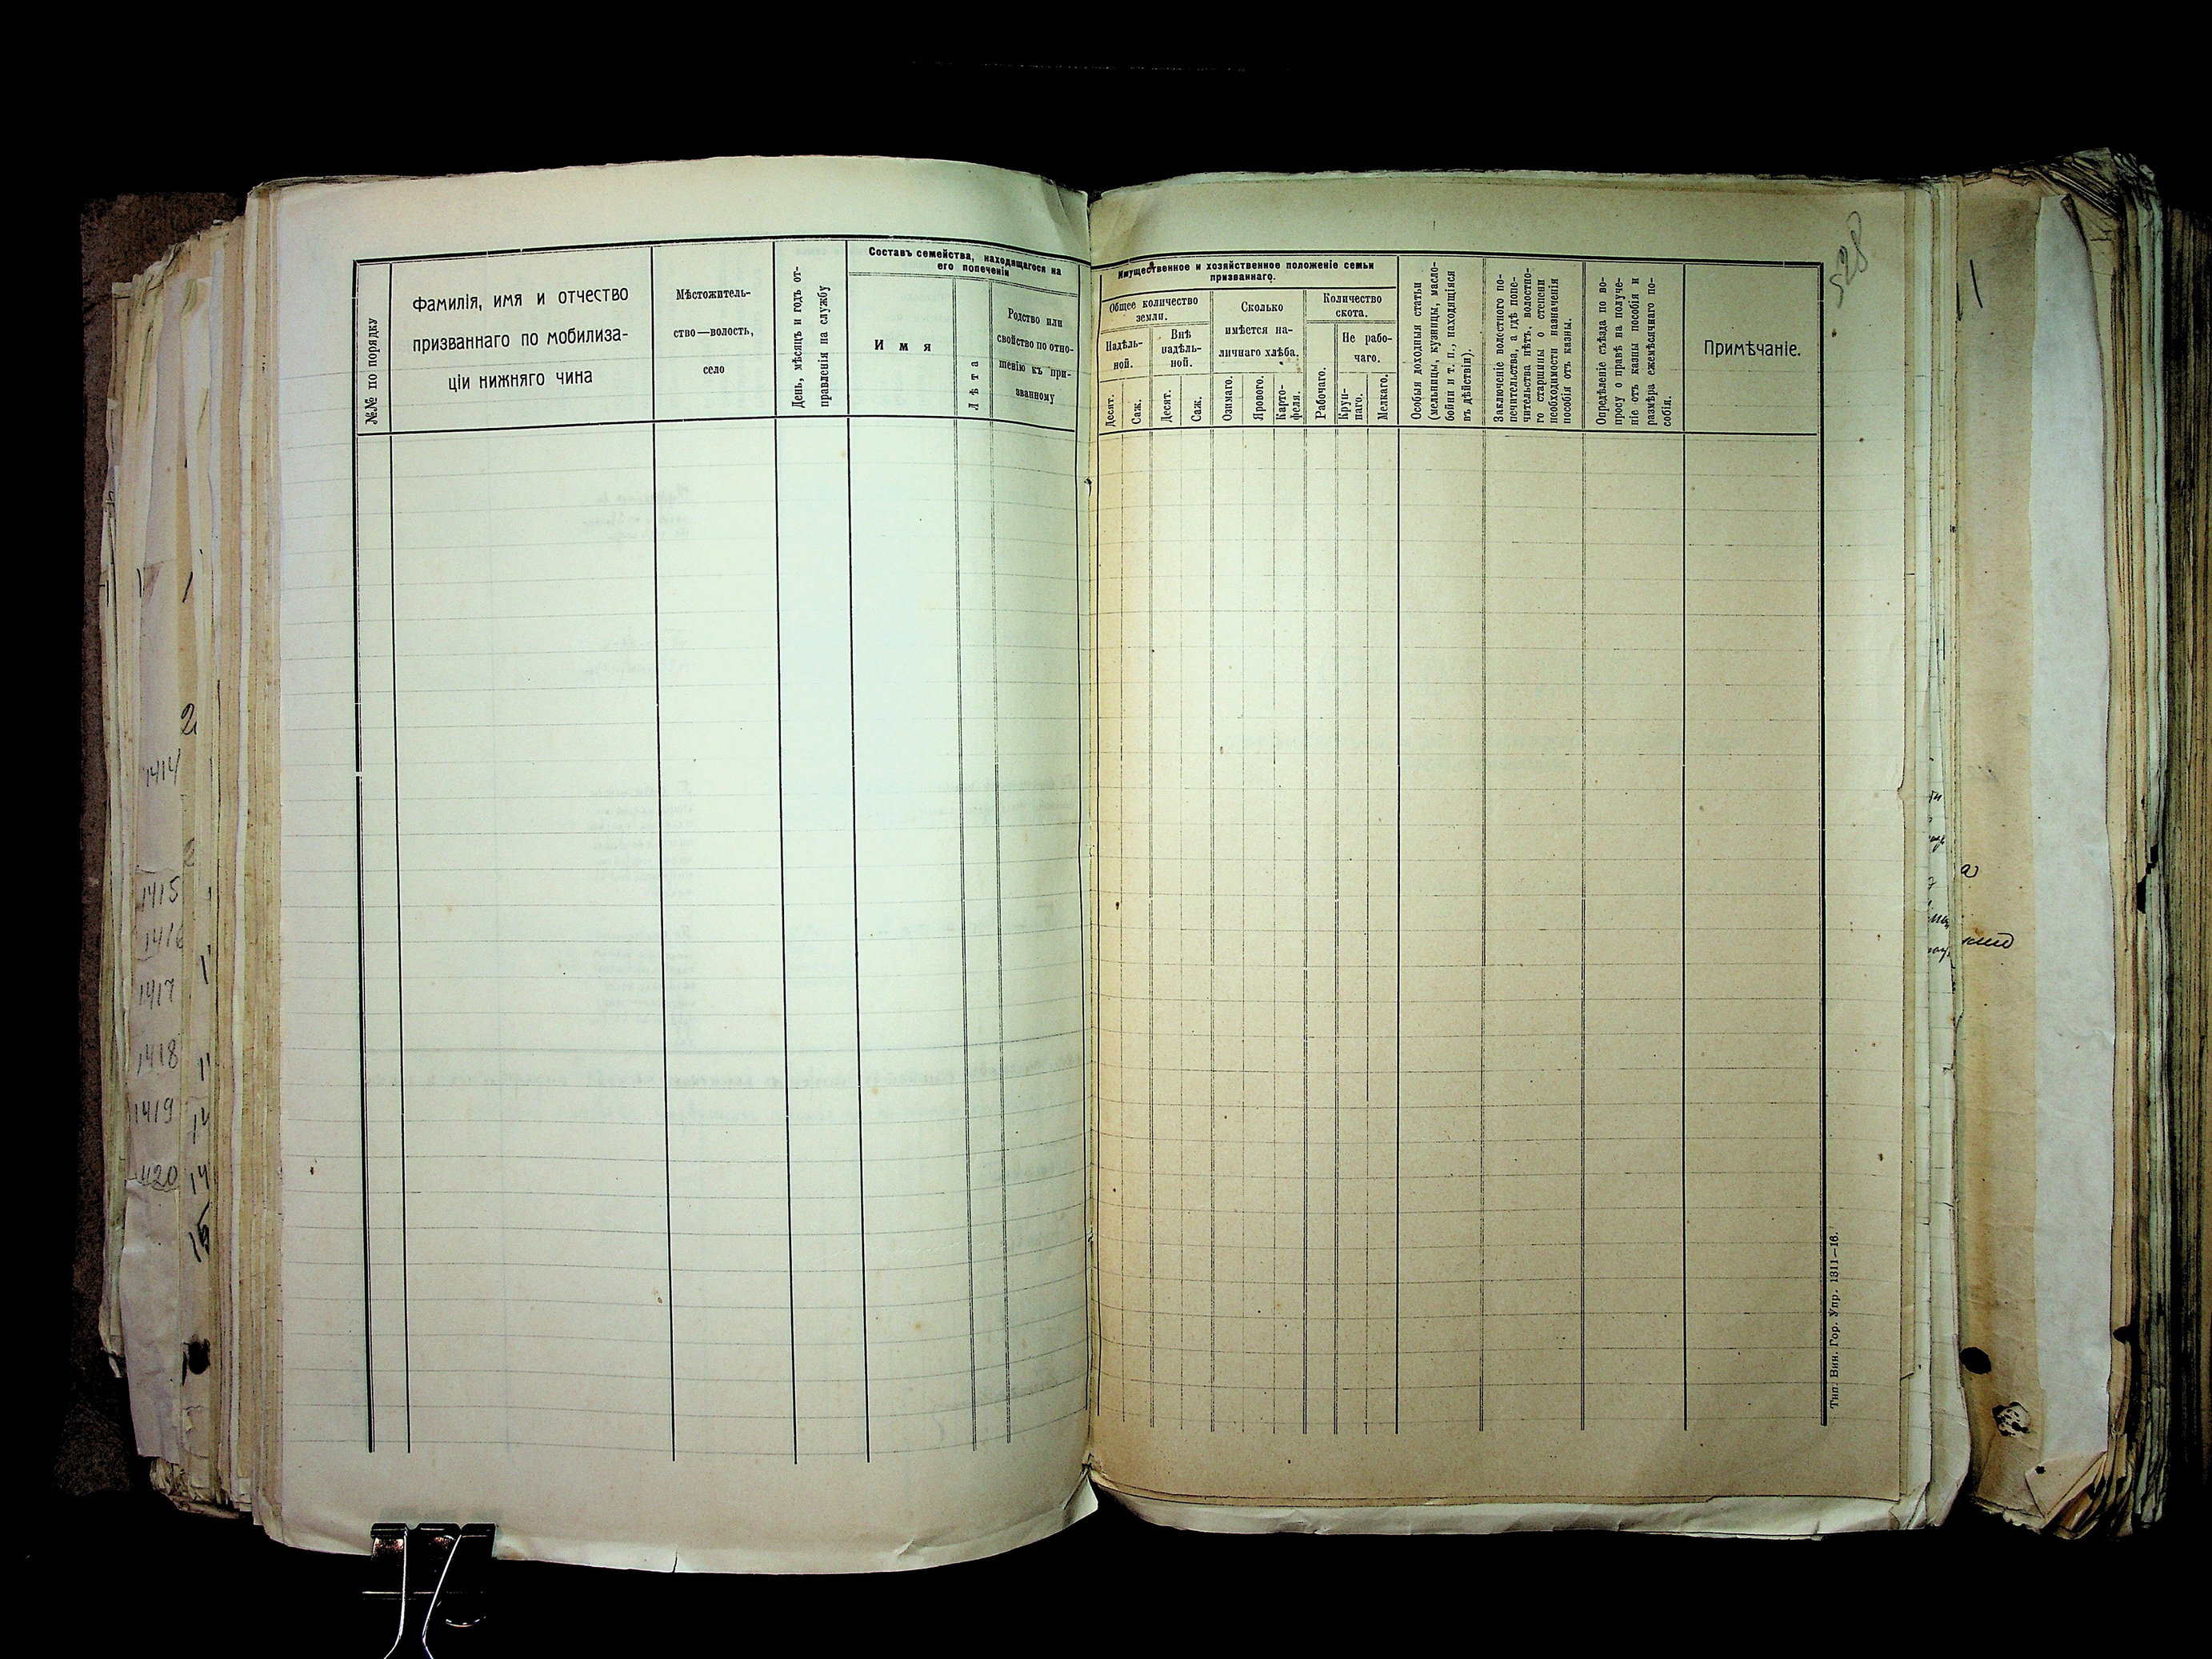 №№ по порядку
Фамилія, имя и отчество
призваннаго по мобилиза-
ціи нижняго чина
Мѣстожитель-
ство—волость,
село
День, мѣсяцъ и годъ от-
правленія на службу
Составъ семейства, находящагося на
его попеченіи
Имя
Лѣта
Родство или
свойство по отно-
шенію къ при-
званному
Имущественное и хозяйственное положеніе семьи
призваннаго.
Общее количество
земли.
Надѣль-
ной.
Десят.
Саж.
Внѣ
надѣль-
ной.
Десят.
Саж.
Сколько
имѣется на-
личнаго хлѣба.
Озимаго.
Ярового.
Карто-
феля.
Количество
скота.
Рабочаго.
Не рабо-
чаго.
Круп-
наго.
Мелкаго.
Особыя доходныя статьи
(мельницы, кузницы, масло-
бойни и т. п., находящіяся
въ дѣйствіи).
Заключеніе волостного по-
печительства, а гдѣ попе-
чительства нѣтъ, волостно-
го старшины о степени
необходимости назначенія
пособія отъ казны.
Опредѣленіе съѣзда по во-
просу о правѣ на получе-
ніе отъ казны пособія и
размѣра ежемѣсячнаго по-
собія.
Примѣчаніе.
528
Тип. Вин. Гор. Упр. 1311—16.
2
1414
2
1415
1416
1417
1418
1419
1420
14
14
15